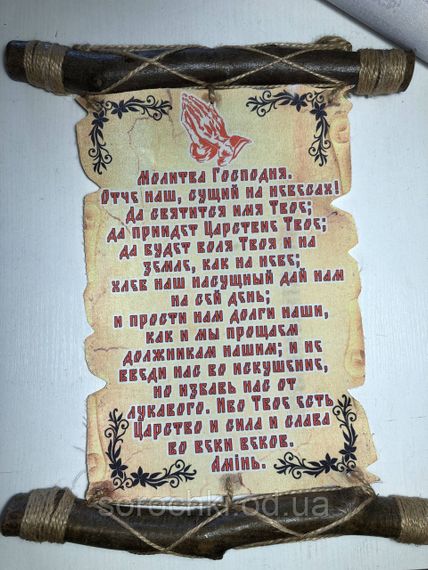 Молитва Господня.
Отче наш, сущий на небесах!
Да святится имя Твое;
да приидет Царствие Твое;
да будет воля Твоя и на
земле, как на небе;
хлеб наш насущный дай нам
на сей день;
и прости нам долги наши,
как и мы прощаем
должникам нашим; и не
введи нас во искушение,
но избавь нас от
лукавого. Ибо Твое есть
Царство и сила и слава
во веки веков.
Амінь.
sorochki.od.ua